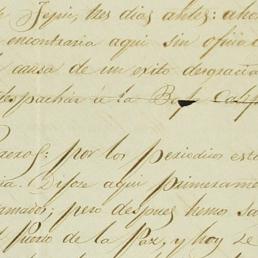 Tepic, tres dias antes: aho
encontraria aqui sin ofici
causa de un exito desgracia
despachár á la B.ª Calif
por los periodicos est
ia. Dijose aqui primerame
amado; pero despues hemo sa
el Puerto de la Paz, y hoy se